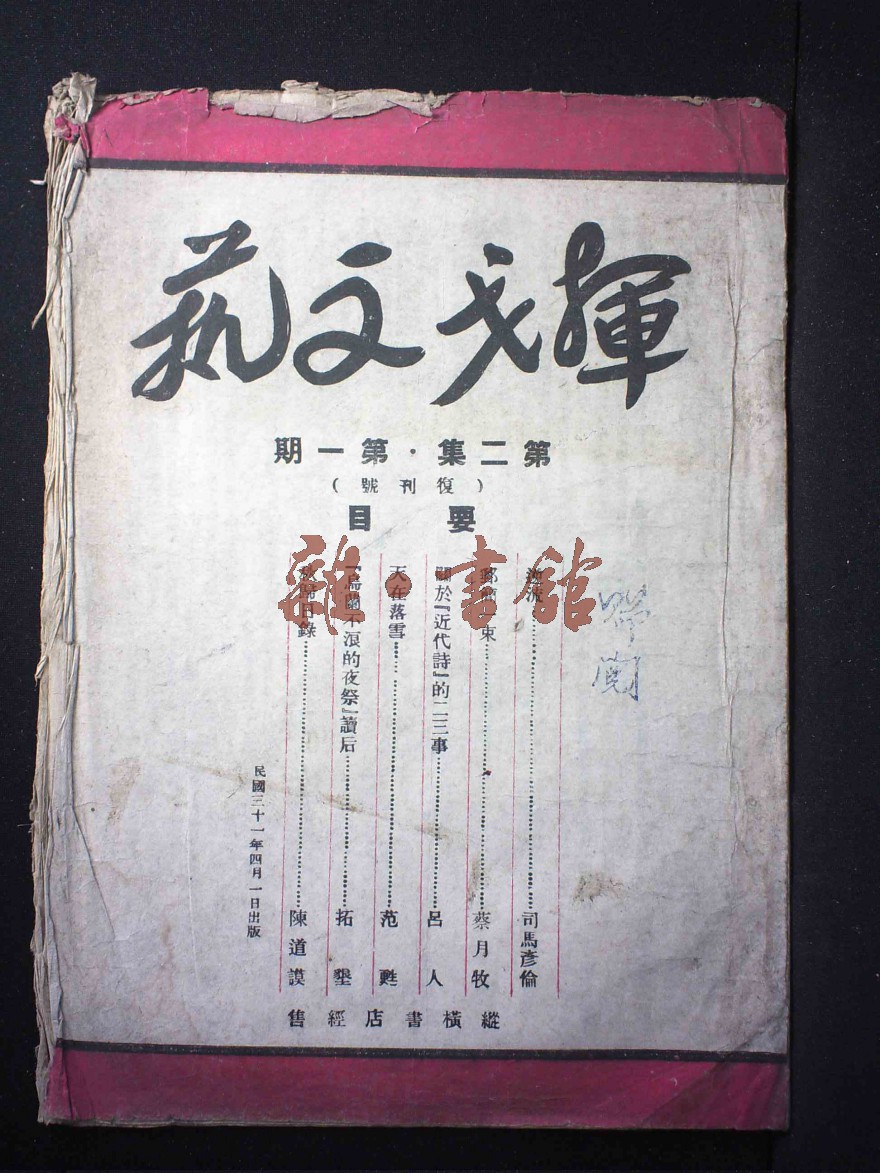 揮戈文藝
第二集·第一期
（復刊號）
要目
流……司馬彥倫
束……蔡月牧
關於『近代詩』的二三事……呂人
天在落雪……范甦
『烏蘭不浪的夜祭』讀后……拓墾
歸日錄……陳道謨
民國三十一年四月一日出版
縱橫書店經售
雜·書館